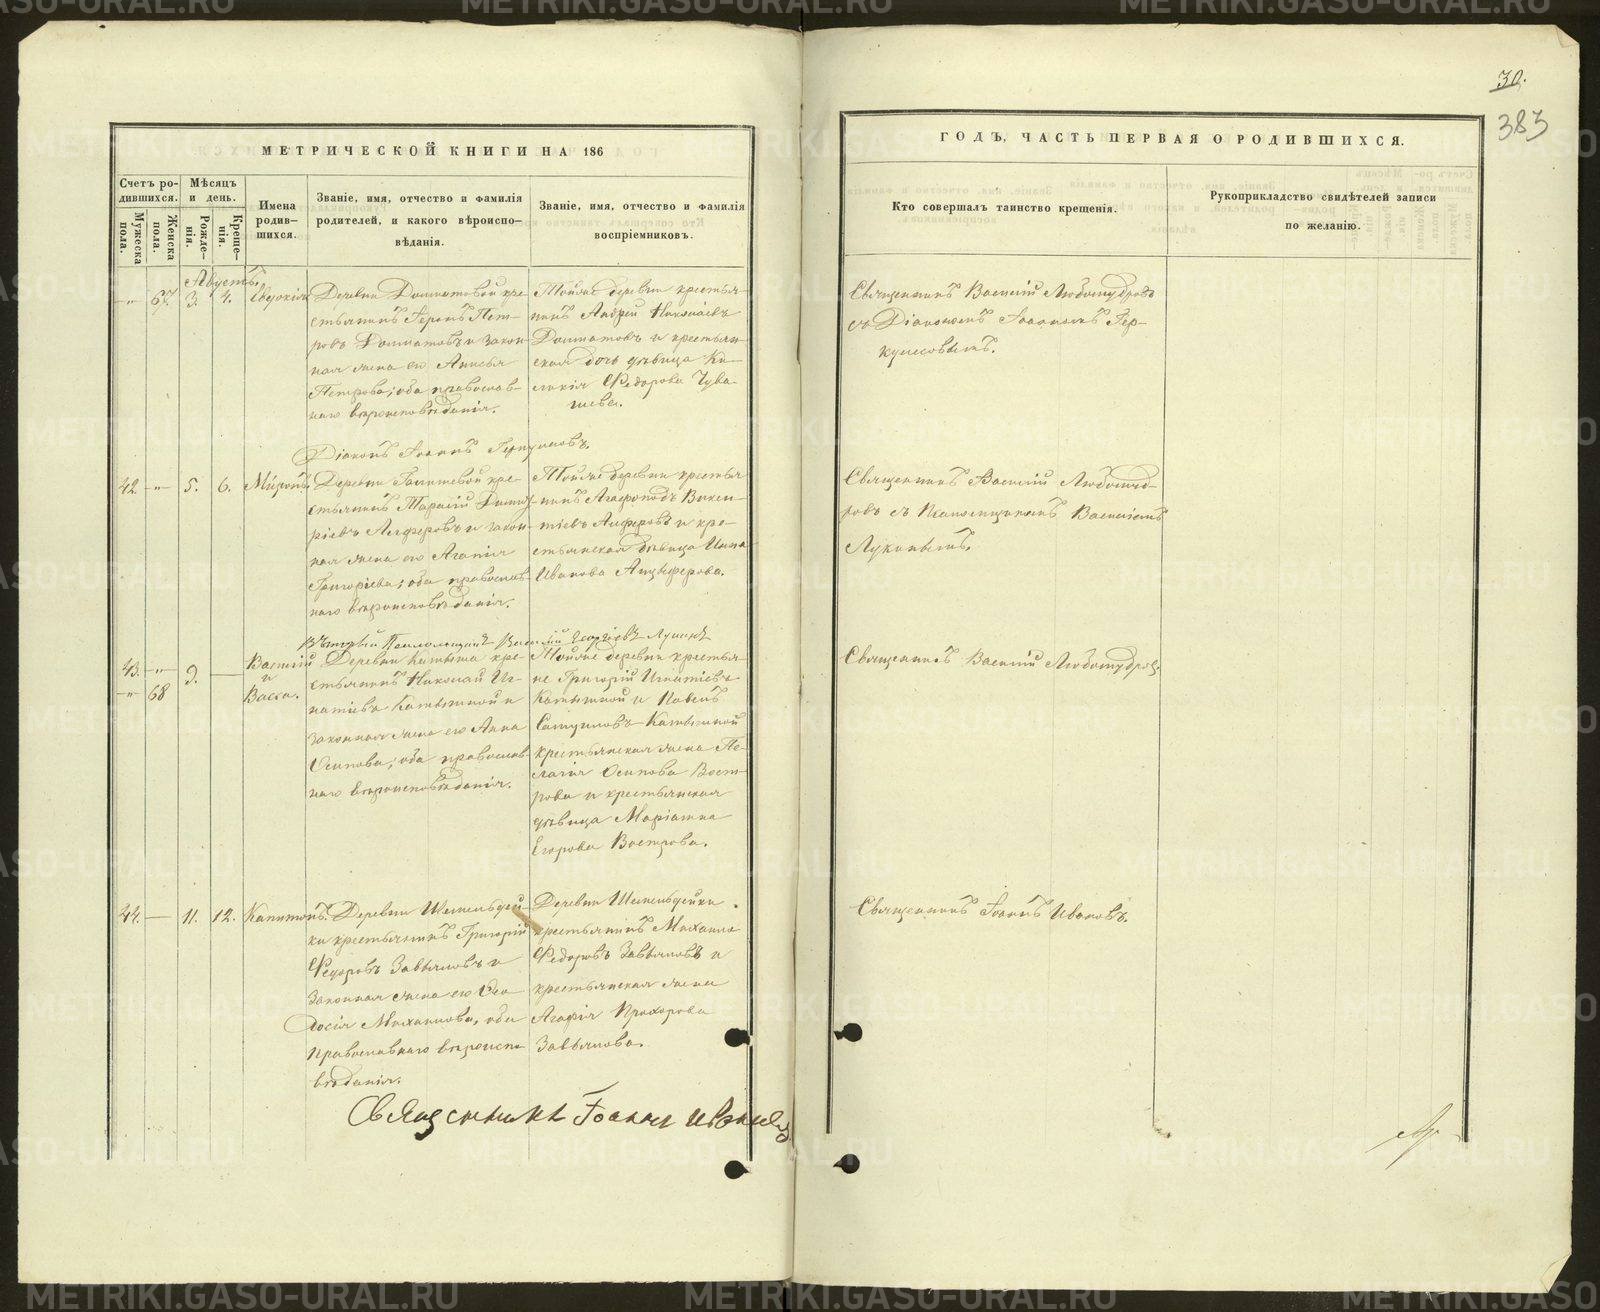 30.
383
МЕТРИЧЕСКОЙ КНИГИ НА 186
ГОДЪ, ЧАСТЬ ПЕРВАЯ О РОДИВШИХСЯ.
Счетъ ро-
дившихся.
Мужеска
пола.
Женска
пола.
Мѣсяцъ
и день.
Рожде-
нія.
Креще-
нія.
Имена
родив-
шихся.
Званіе, имя, отчество и фамилія
родителей, и какого вѣроиспо-
вѣданія.
Званіе, имя, отчество и фамилія
воспріемниковъ.
Кто совершалъ таинство крещенія.
Рукоприкладство свидѣтелей записи
по желанію.
Августъ.
67. 3. 4. Евдокія
Деревни Долматовой кре-
стьянинъ Героль Пет-
ровъ Долматовъ и закон-
ная жена его Анисья
Петрова; оба православ-
наго вѣроисповѣданія.
Тойже деревни крестья-
нинъ Андрей Николаевъ
Долматовъ и крестьян-
ская дочь дѣвица Ки-
ликія Федорова Чува-
шева.
Священникъ Василій Любомудровъ
съ Діакономъ Іоанномъ Гер-
кулесовымъ.
Діаконъ Іоаннъ Геркулесовъ.
42. 5. 6. Миронъ.
Деревни
кре-
стьянинъ Тарасій Димит-
ріевъ Алферовъ и закон-
ная жена его Агапія
Григоріева; оба православ-
наго вѣроисповѣданія.
Тойже деревни крестья-
нинъ Агафоподъ Викен-
тіевъ Алферовъ и кре-
стьянская дѣвица Инна
Иванова Анцыферова.
Священникъ Василій Любомуд-
ровъ съ Псаломщикомъ Василіемъ
Лукинымъ.
Псаломщикъ Василій Георгіевъ Лукинъ
43. 68 9.
Василій
и
Васса.
Деревни Катыша кре-
стьянинъ Николай Иг-
натіевъ Катышной и
законная жена его Анна
Осипова; оба православ-
наго вѣроисповѣданія.
Тойже деревни крестья-
не Григорій Игнатіевъ
Катышной и Павелъ
Катышной
крестьянская жена Пе-
лагія Осипова Вост-
рова и крестьянская
дѣвица Маріамна
Егорова Вострова.
Священникъ Василій Любомудровъ.
44. 11. 12. Капитонъ.
Деревни Шемельдей-
ки крестьянинъ Григорій
Федоровъ Завьяловъ и
законная жена его Фео-
досія Михаилова, оба
православнаго вѣроиспо-
вѣданія.
Деревни Шемельдейки
крестьянинъ Михаилъ
Федоровъ Завьяловъ и
крестьянская жена
Агафія Прохорова
Завьялова.
Священникъ Іоаннъ Ивановъ.
Священникъ Іоаннъ Ивановъ
METRIKI.GASO-URAL.RU